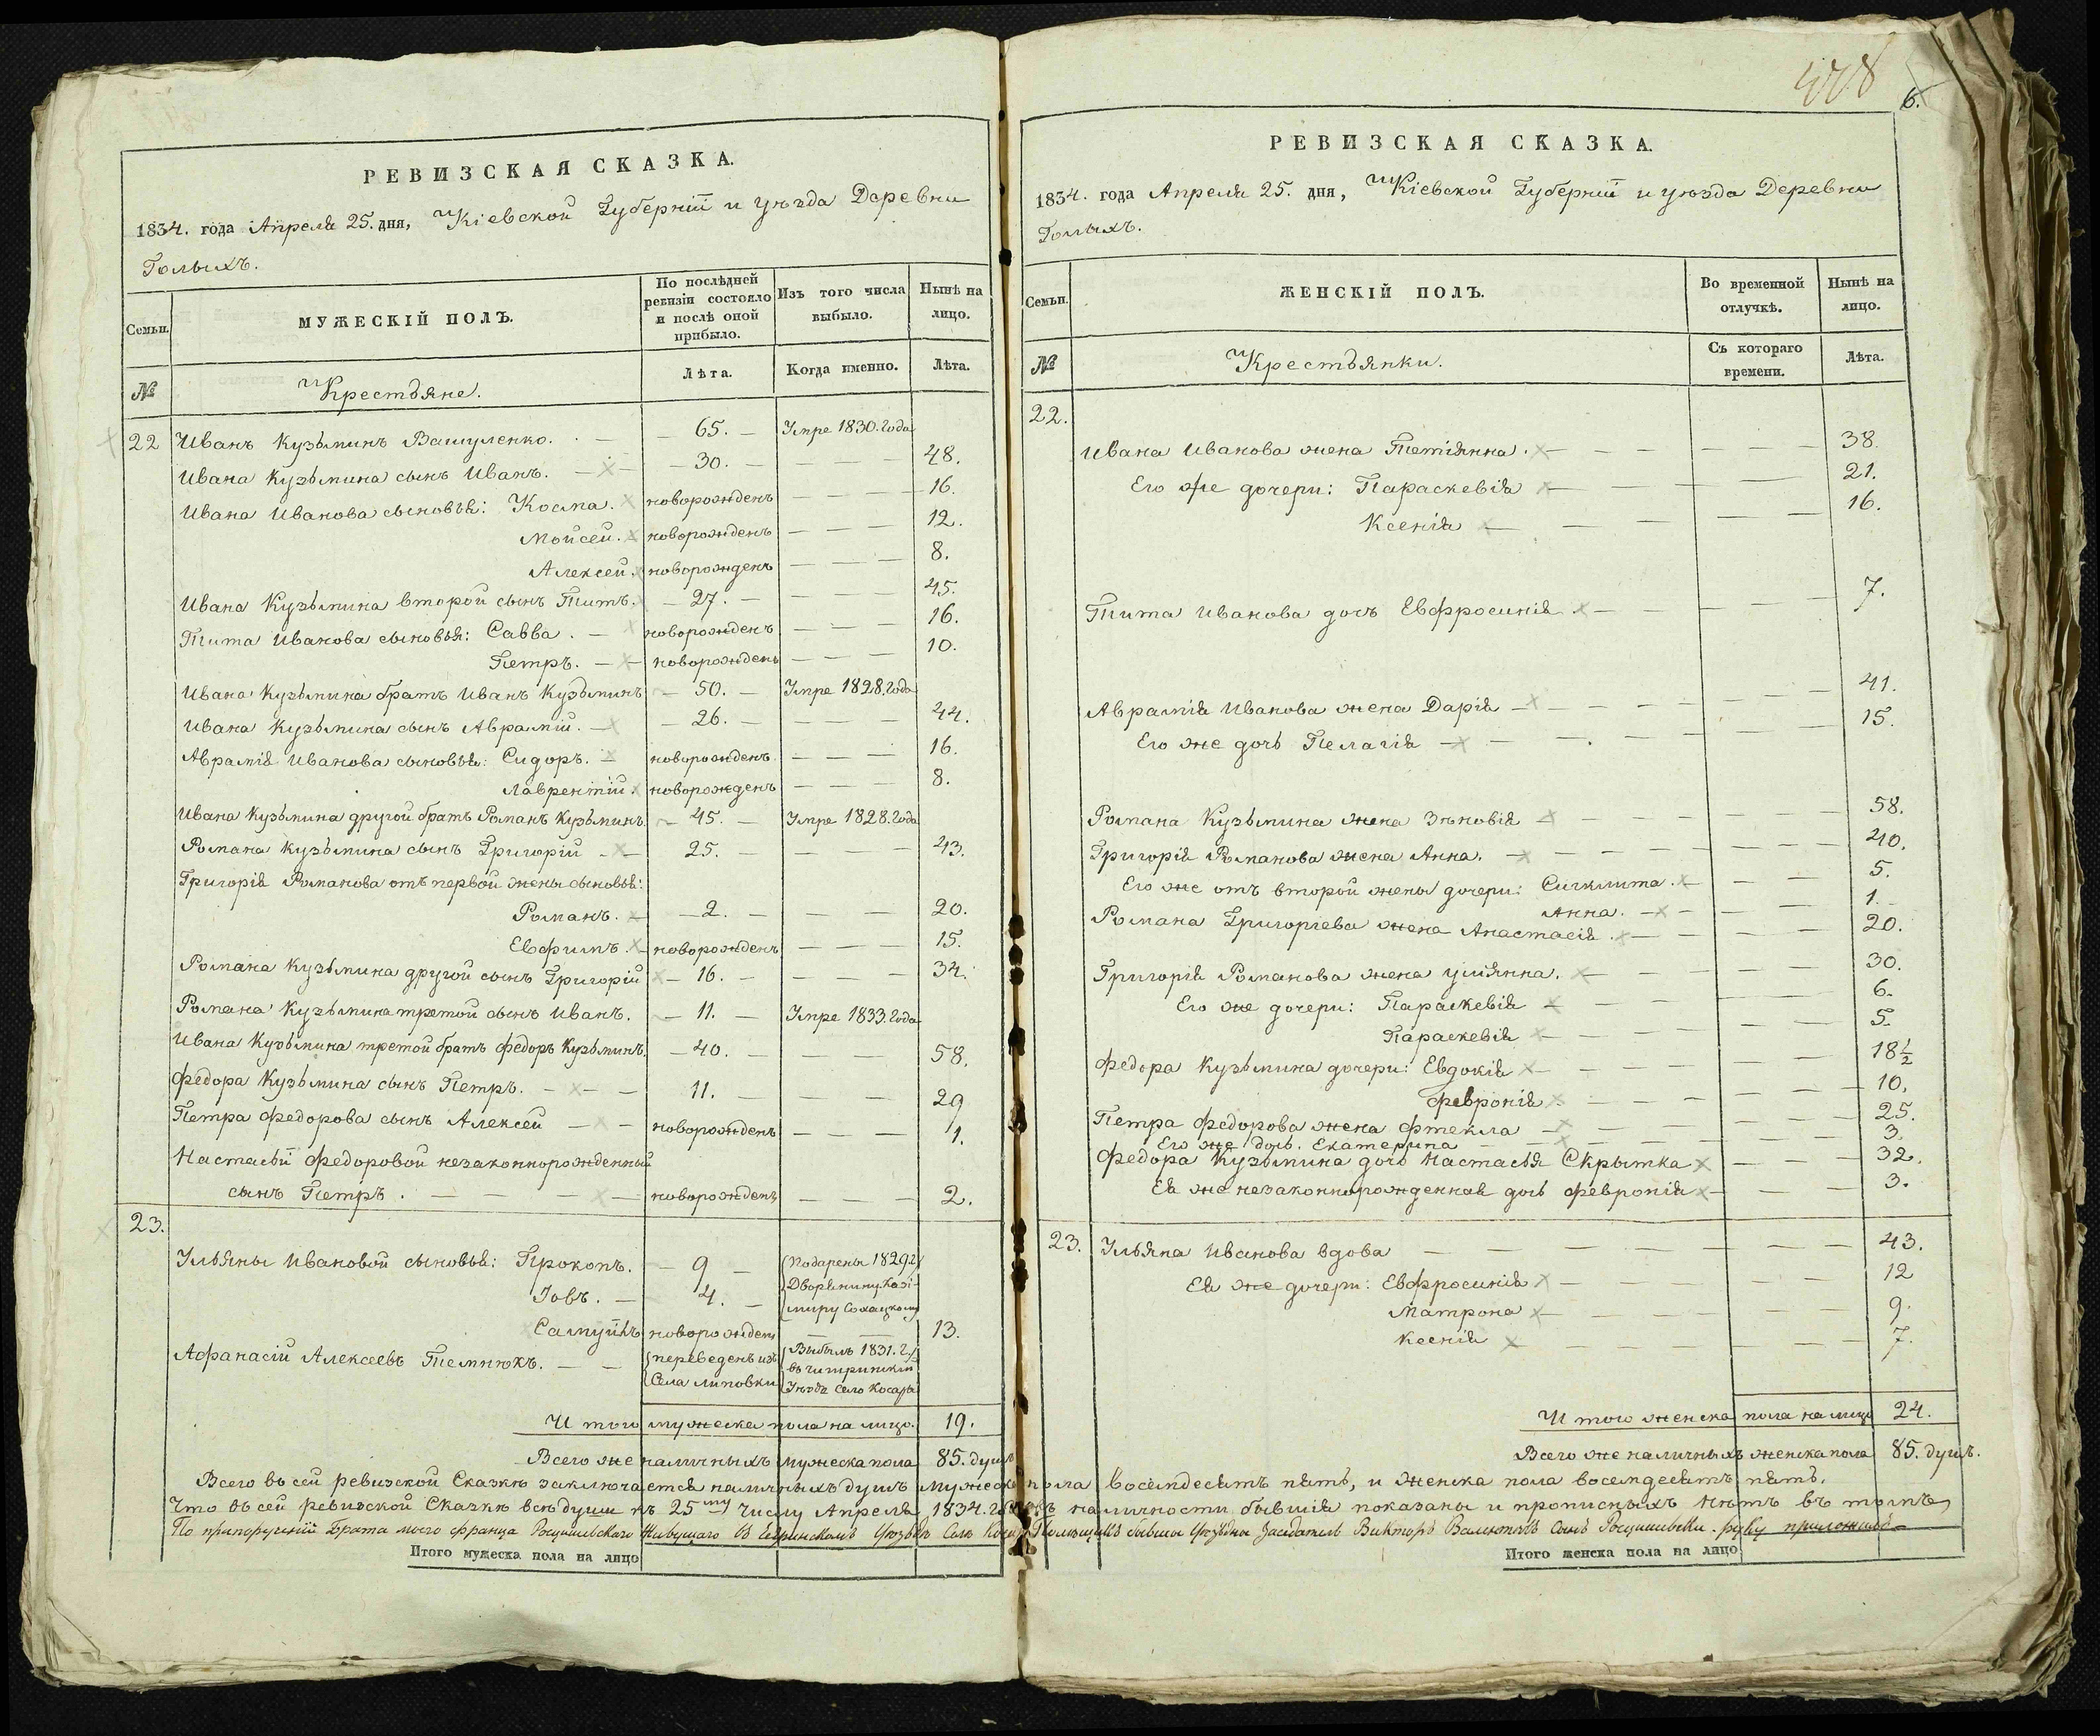 РЕВИЗСКАЯ СКАЗКА.
1834. года Апреля 25. дня, Кіевской Губерніи и уѣзда Деревни
Голыхъ.
Семьи.
МУЖЕСКІЙ ПОЛЪ.
По послѣдней ревизіи состояло и послѣ оной прибыло.
Изъ того числа выбыло.
Нынѣ на лицо.
№
Крестьяне.
Лѣта.
Когда именно.
Лѣта.
22 Иванъ Кузьминъ Вашуленко. — 65. — Умре 1830. года
Ивана Кузьмина сынъ Иванъ. — 30. — — — — 48.
Ивана Иванова сыновья: Косма. новорожденъ — — — 16.
Мойсей. новорожденъ — — — 12.
Алексей. новорожденъ — — — 8.
Ивана Кузьмина второй сынъ Титъ. — 27. — — — — 45.
Тита Иванова сыновья: Савва. — новорожденъ — — — 16.
Петръ. — новорожденъ — — — 10.
Ивана Кузьмина братъ Иванъ Кузьминъ — 50. — Умре 1828. года
Ивана Кузьмина сынъ Аврамій. — 26. — — — — 44.
Аврамія Иванова сыновья: Сидоръ. новорожденъ — — — 16.
Лаврентій. новорожденъ — — — 8.
Ивана Кузьмина другой братъ Романъ Кузьминъ — 45. — Умре 1828. года
Романа Кузьмина сынъ Григорій — 25. — — — — 43.
Григорія Романова отъ первой жены сыновья:
Романъ. — 2. — — — 20.
Евфимъ. новорожденъ — — — 15.
Романа Кузьмина другой сынъ Григорій — 16. — — — — 34.
Романа Кузьмина третой сынъ Иванъ. — 11. — Умре 1833. года
Ивана Кузьмина третой братъ Федоръ Кузьминъ. — 40. — — — — 58.
Федора Кузьмина сынъ Петръ. — — 11. — — — — 29
Петра Федорова сынъ Алексей — — новорожденъ — — — 1.
Настасьи Федоровой незаконнорожденный
сынъ Петръ. — — — — новорожденъ — — — 2.
23.
Ульяны Ивановой сыновья: Прокопъ. — 9 — Подарены 1829 г.
Іовъ. — 4. — Дворянину Казимиру Сохацкому
Самуйлъ новорожденъ — — 13.
Афанасій Алексеевъ Темнюкъ. — — переведенъ изъ Села Липовки Выбылъ 1831. г. въ Чигринскій Уѣздъ село Косары
Итого мужеска пола на лицо. 19.
Всего же наличныхъ мужеска пола 85. душъ
Всего въ сей ревизской Сказкѣ заключается наличныхъ душъ мужеска
Что въ сей ревизской Сказкѣ всѣ души къ 25му Числу Апреля 1834. года
По припорученій Брата моего Франца Росцишевскаго Живущаго въ Чегринскомъ Уѣздѣ Селѣ
Итого мужеска пола на лицо
478
6.
РЕВИЗСКАЯ СКАЗКА.
1834. года Апреля 25. дня, Кіевской Губерніи и уѣзда Деревни
Голыхъ.
Семьи.
ЖЕНСКІЙ ПОЛЪ.
Во временной отлучкѣ.
Нынѣ на лицо.
№
Крестьянки.
Съ котораго времени.
Лѣта.
22.
Ивана Иванова жена Тетіянна. — — — — 38.
Его же дочери: Параскевія — — — — 21.
Ксенія — — — — 16.
Тита Иванова дочь Евфросинія — — — — 7.
Аврамія Иванова жена Дарія — — — — 41.
Его же дочь Пелагія — — — — 15.
Романа Кузьмина жена Зѣновія — — — — 58.
Григорія Романова жена Анна. — — — — 40.
Его же отъ второй жены дочери: Сиклита. — — 5.
Анна. — — — 1.
Романа Григоріева жена Анастасія — — — 20.
Григорія Романова жена Уліянна. — — — — 30.
Его же дочери: Параскевія — — — — 6.
Параскевія — — — — 5.
Федора Кузьмина дочери: Евдокія — — — — 18½
Февронія — — — — 10.
Петра Федорова жена Фтекла — — — — 25.
Его же дочь. Екатерина — — — — 3.
Федора Кузьмина дочь Настасья Скрытка — — — 32.
Ея же незаконнорожденная дочь Февронія — — — 3.
23. Ульяна Иванова вдова — — — — 43.
Ея же дочери: Евфросинія — — — — 12
Матрона — — — — 9.
Ксенія — — — — 7.
Итого женска пола на лицо 24.
Всего же наличныхъ женска пола 85. душъ.
пола восемдесятъ пять, и женска пола восемдесятъ пять.
въ наличности бывшія показаны и прописныхъ нѣтъ въ томъ
Помещикъ бывшій Уѣздный Заседатель Викторъ Валентіевъ Сынъ Росцишевски. руку приложилъ
Итого женска пола на лицо